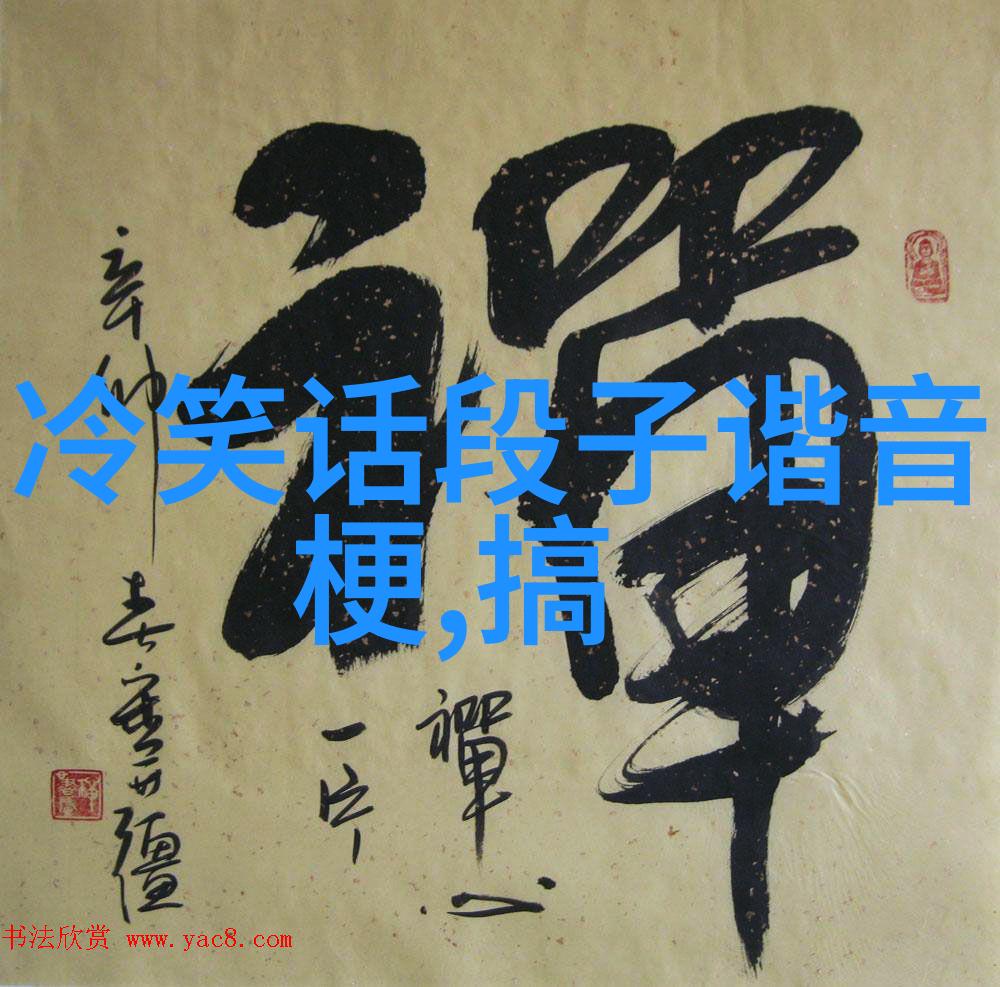 禪
冷笑话段子谐音
梗,搞
禪心
一片
辛卯
春
书法欣赏 www.yac8.com